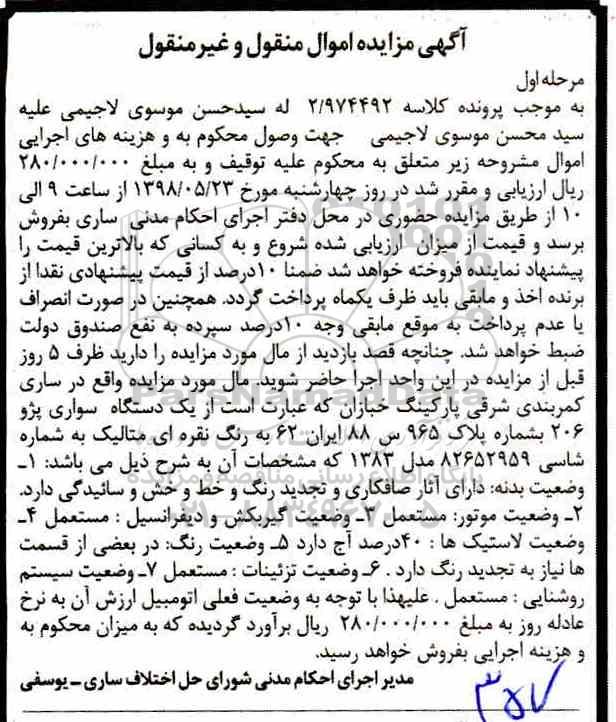 آگهی مزایده اموال منقول و غیرمنقول
مرحله اول
به موجب پرونده کلاسه ۲/۹۷۴۴۹۲ له سیدحسن موسوی لاجیمی علیه
سید محسن موسوی لاجیمی جهت وصول محکوم به و هزینه های اجرایی
اموال مشروحه زیر متعلق به محکوم علیه توقیف و به مبلغ ۲۸۰/۰۰۰/۰۰۰
ریال ارزیابی و مقرر شد در روز چهارشنبه مورخ ۱۳۹۸/۰۵/۲۳ از ساعت ۹ الی
۱۰ از طریق مزایده حضوری در محل دفتر اجرای احکام مدنی ساری بفروش
برسد و قیمت از میزان ارزیابی شده شروع و به کسانی که بالاترین قیمت را
پیشنهاد نماینده فروخته خواهد شد ضمنا ۱۰درصد از قیمت پیشنهادی نقدا از
برنده اخذ و مابقی باید ظرف یکماه پرداخت گردد. همچنین در صورت انصراف
یا عدم پرداخت به موقع مابقی وجه ۱۰درصد سپرده به نفع صندوق دولت
ضبط خواهد شد. چنانچه قصد بازدید از مال مورد مزایده را دارید ظرف ۵ روز
قبل از مزایده در این واحد اجرا حاضر شوید. مال مورد مزایده واقع در ساری
کمربندی شرقی پارکینگ خبازان که عبارت است از یک دستگاه سواری پژو
۲۰۶ بشماره پلاک ۹۶۵ س ۸۸ ایران ۶۲ به رنگ نقره ای متالیک به شماره
شاسی ۸۲۶۵۲۹۵۹ مدل ۱۳۸۳ که مشخصات آن به شرح ذیل می باشد: ۱ـ
وضعیت بدنه: دارای آثار صافکاری و تجدید رنگ و خط و خش و سائیدگی دارد.
۲ـ وضعیت موتور: مستعمل ۳ـ وضعیت گیربکش و دیفرانسیل : مستعمل ۴ـ
وضعیت لاستیک ها : ۴۰درصد آج دارد ۵ـ وضعیت رنگ: در بعضی از قسمت
ها نیاز به تجدید رنگ دارد . ۶ـ وضعیت تزئینات : مستعمل ۷ـ وضعیت سیستم
روشنایی : مستعمل . علیهذا با توجه به وضعیت فعلی اتومبیل ارزش آن به نرخ
عادله روز به مبلغ ۲۸۰/۰۰۰/۰۰۰ ریال برآورد گردیده که به میزان محکوم به
و هزینه اجرایی بفروش خواهد رسید.
مدیر اجرای احکام مدنی شورای حل اختلاف ساری ـ یوسفی
ParsNamadData
پایگاه اطلاع رسانی مناقصه و مزایده
۰۲۱-۸۸۳۴۹۶۷۰-۵